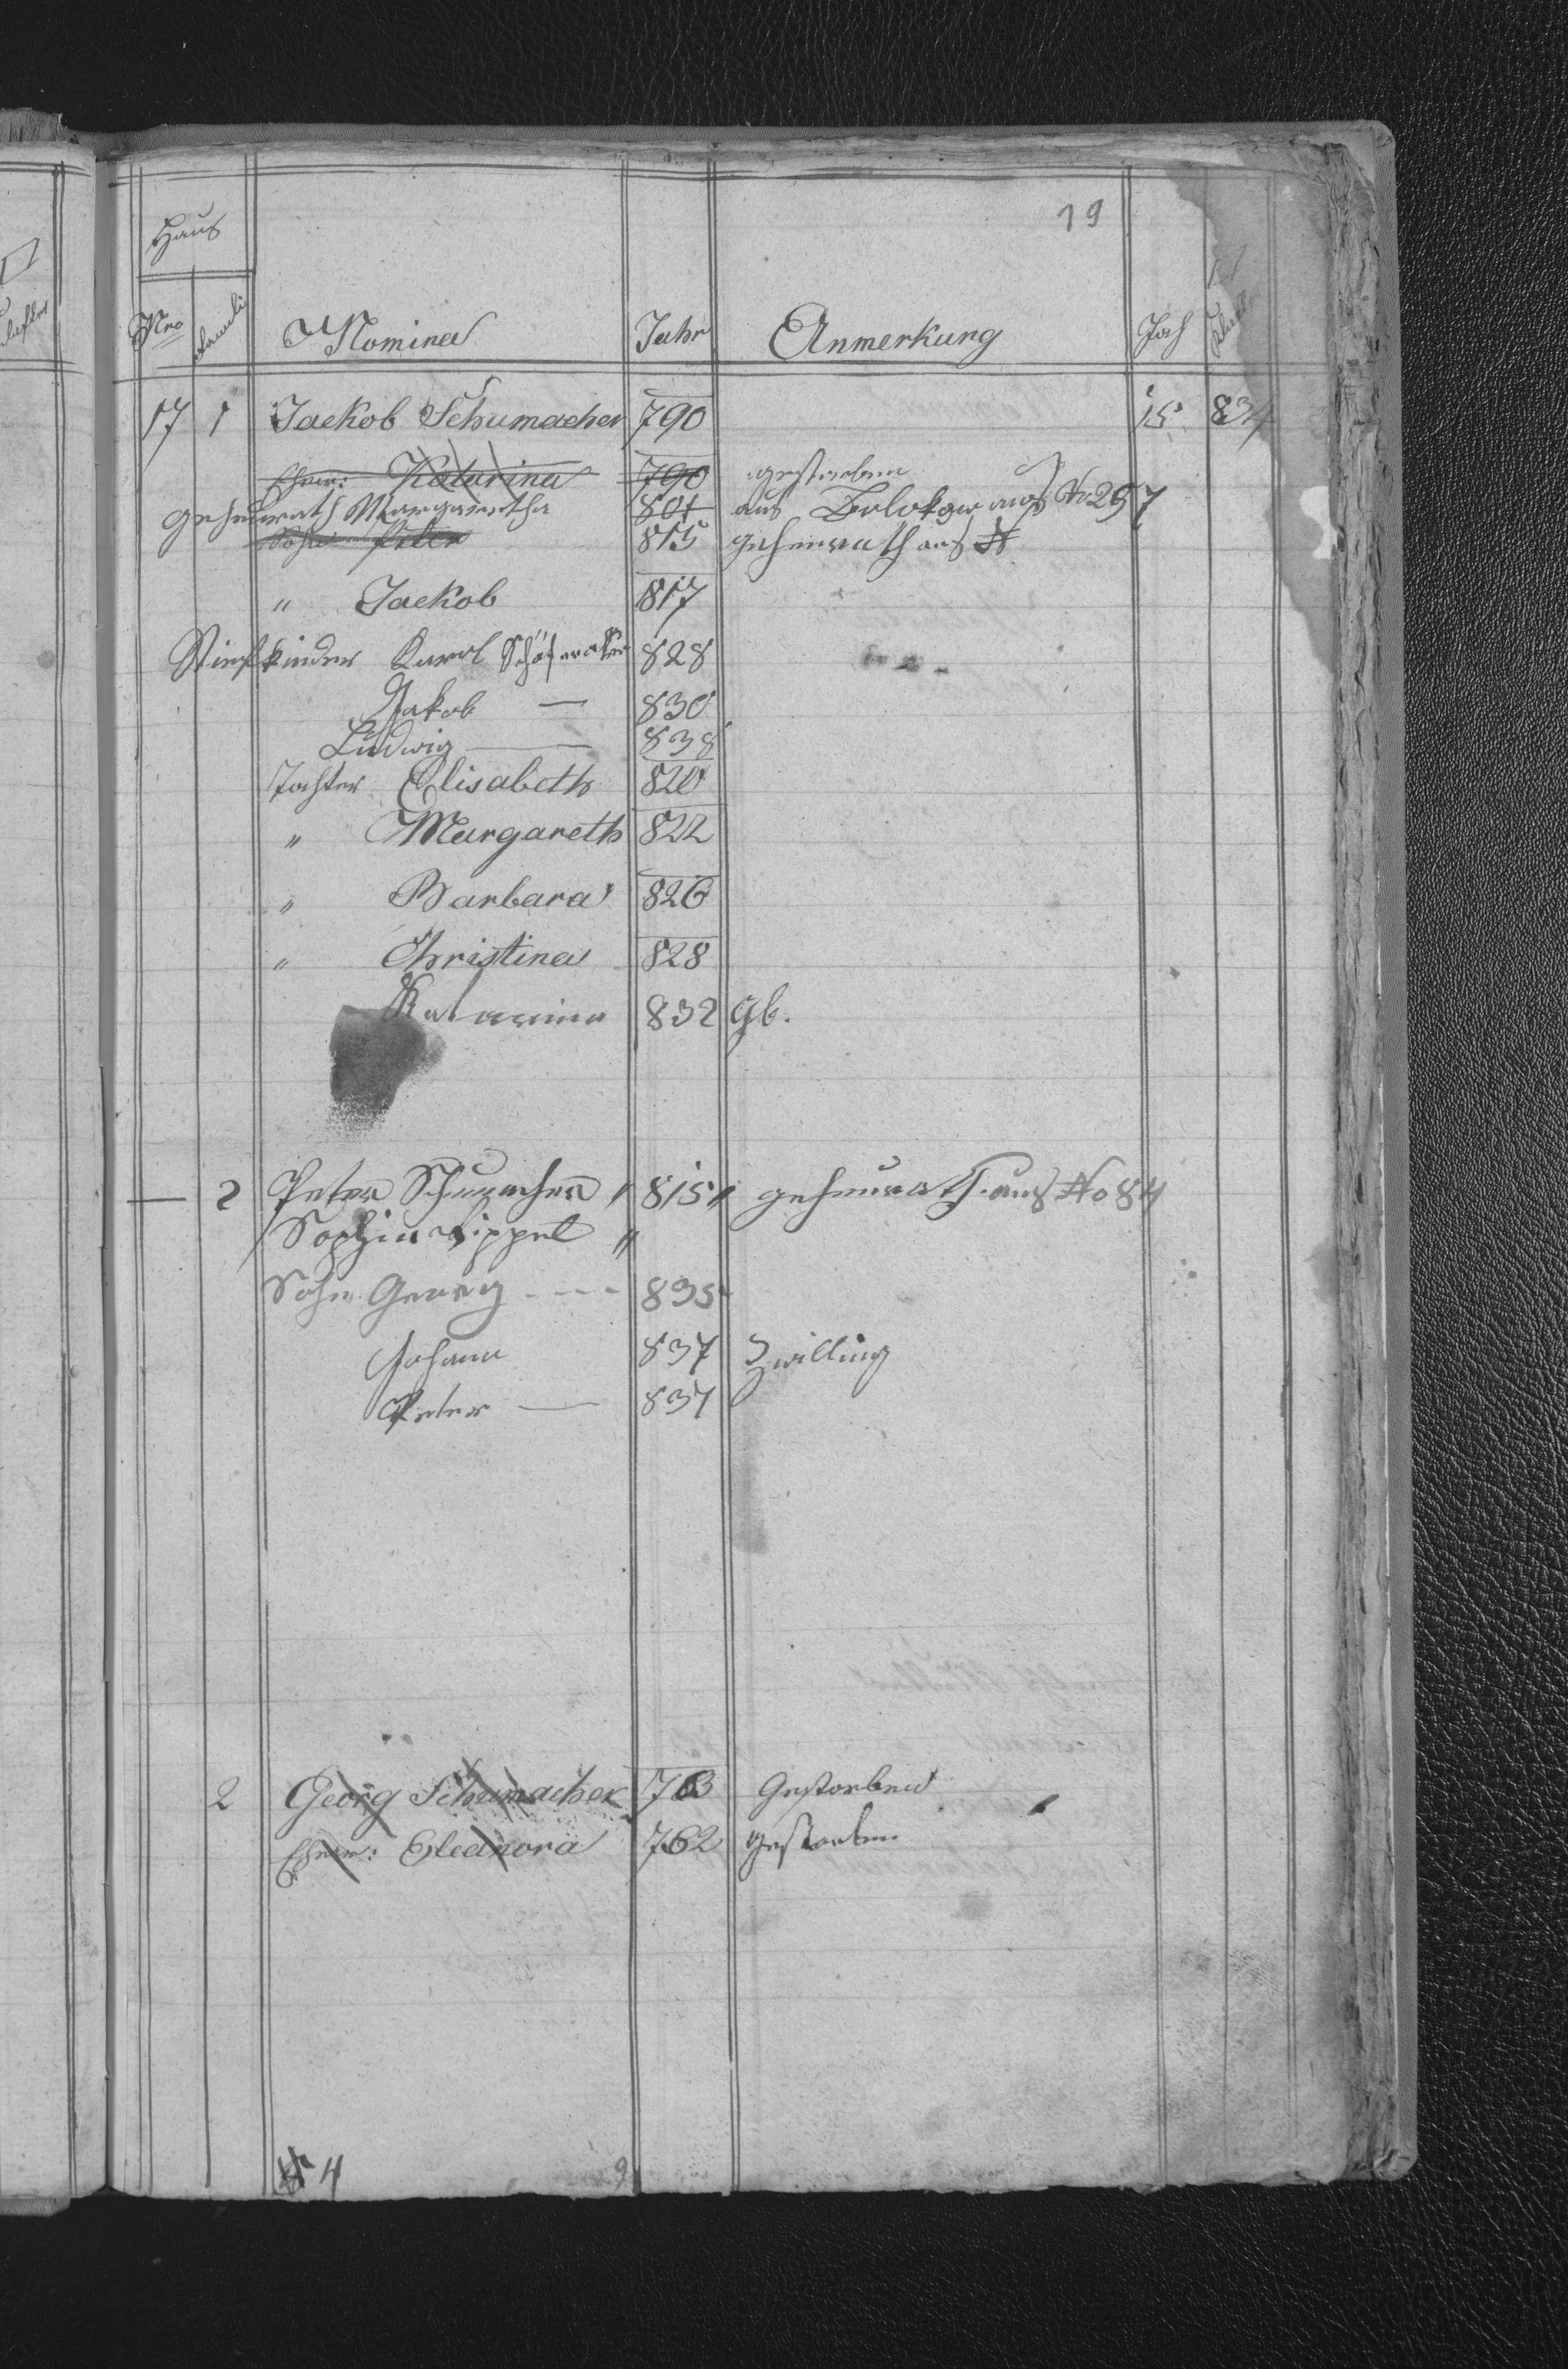 19
Haus
Nro Famili Nomina Jahr Anmerkung Joch
17 1 Jackob Schumacher 790 15 834
Ehew: Katarina 790 gestorben
geheurath Margaretha 801 aus No 257
Sohn Peter 815 geheurath auf #
" Jackob 817
Stiefkinder Karol 828
Jakob — 830
Ludwig — 838
Tochter Elisabeth 820
" Margareth 822
" Barbara 826
" Christina 828
Katarina 832 gb.
— 2 Peter Schumacher " 815 " geheurath auf No 84
Sophia Lippel "
Sohn Georg - - - 835
Johann 837 Zwilling
Peter — 837
2 Georg Schumacher 763 Gestorben
Ehew: Eleanora 762 gestorben
4 9